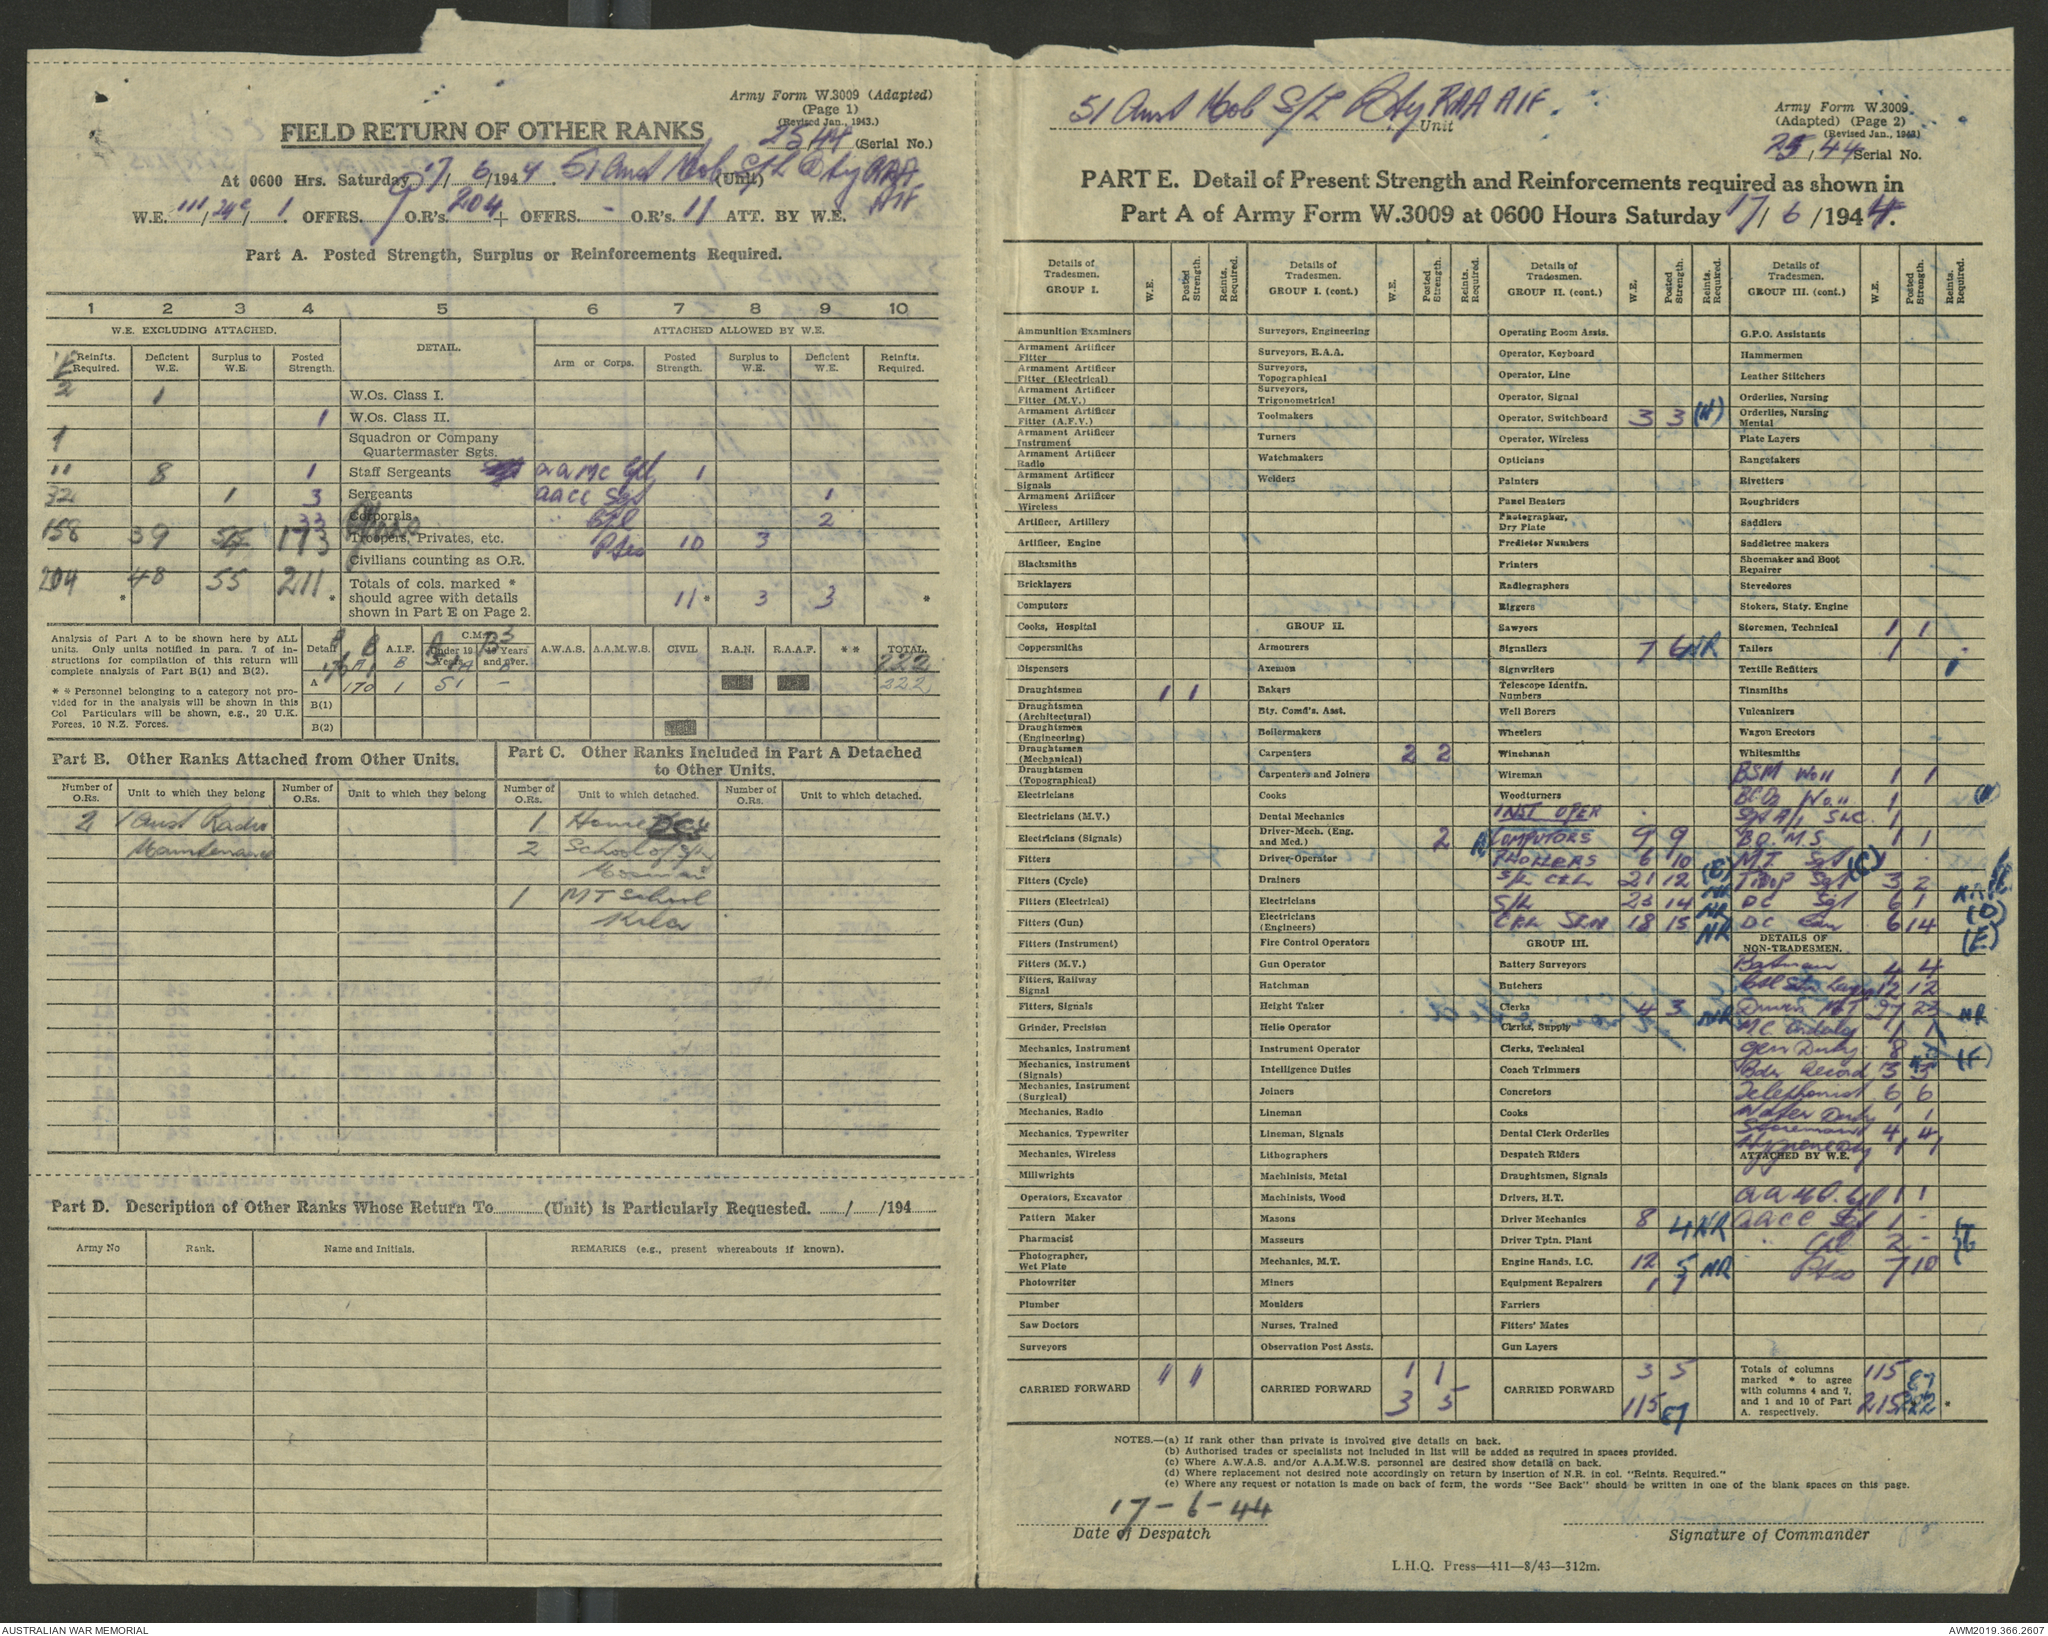 Army Form W.3009 (Adapted)
(Page 1)
(Revised Jan., 1943.)
FIELD RETURN OF OTHER RANKS
25/44 (Serial No.)
At 0600 Hrs. Saturday 17/6/1944. 51 Aust Mob S/L Bty RAA AIF (Unit)
W.E. 111/ / 1. OFFRS. O.R's. 204 + OFFRS. - O.R's. 11 ATT. BY W.E.
Part A. Posted Strength, Surplus or Reinforcements Required.
1 2 3 4 5 6 7 8 9 10
W.E. EXCLUDING ATTACHED. DETAIL. ATTACHED ALLOWED BY W.E.
Reinfts. Required. Deficient W.E. Surplus to W.E. Posted Strength. Arm or Corps. Posted Strength. Surplus to W.E. Deficient W.E. Reinfts. Required.
2 1 W.Os. Class I.
1 W.Os. Class II.
1 Squadron or Company Quartermaster Sgts.
11 8 1 Staff Sergeants AAMC Cpl 1
32 1 3 Sergeants AACC Sgt 1
33 Corporals Cpl 2
158 39 173 Troopers, Privates, etc. Ptes 10 3
Civilians counting as O.R.
204 48 55 211 Totals of cols. marked * should agree with details shown in Part E on Page 2. 11 * 3 3 *
Analysis of Part A to be shown here by ALL
units. Only units notified in para. 7 of in-
structions for compilation of this return will
complete analysis of Part B(1) and B(2).
* * Personnel belonging to a category not pro-
vided for in the analysis will be shown in this
Col Particulars will be shown, e.g., 20 U.K.
Forces, 10 N.Z. Forces.
Detail A.I.F. C.M.F. Under 19 Years 19 Years and over. A.W.A.S. A.A.M.W.S. CIVIL R.A.N. R.A.A.F. * * TOTAL.
222
A 170 1 51 - 222
B(1)
B(2)
Part B. Other Ranks Attached from Other Units.
Number of O.Rs. Unit to which they belong Number of O.Rs. Unit to which they belong
2 1 Aust Radio
Maintenance
Part C. Other Ranks Included in Part A Detached
to Other Units.
Number of O.Rs. Unit to which detached. Number of O.Rs. Unit to which detached.
1 Home
2 School of S/L
Mosman
1 MT School
Kila
Part D. Description of Other Ranks Whose Return To (Unit) is Particularly Requested. / /194
Army No Rank. Name and Initials. REMARKS (e.g., present whereabouts if known).
51 Aust Mob S/L Bty RAA AIF
Unit
Army Form W.3009
(Adapted) (Page 2)
(Revised Jan., 1943)
25/44 Serial No.
PART E. Detail of Present Strength and Reinforcements required as shown in
Part A of Army Form W.3009 at 0600 Hours Saturday 17/6/1944.
Details of Tradesmen. GROUP I. W.E. Posted Strength. Reints. Required.
Ammunition Examiners
Armament Artificer Fitter
Armament Artificer Fitter (Electrical)
Armament Artificer Fitter (M.V.)
Armament Artificer Fitter (A.F.V.)
Armament Artificer Instrument
Armament Artificer Radio
Armament Artificer Signals
Armament Artificer Wireless
Artificer, Artillery
Artificer, Engine
Blacksmiths
Bricklayers
Computors
Cooks, Hospital
Coppersmiths
Dispensers
Draughtsmen 1 1
Draughtsmen (Architectural)
Draughtsmen (Engineering)
Draughtsmen (Mechanical)
Draughtsmen (Topographical)
Electricians
Electricians (M.V.)
Electricians (Signals)
Fitters
Fitters (Cycle)
Fitters (Electrical)
Fitters (Gun)
Fitters (Instrument)
Fitters (M.V.)
Fitters, Railway Signal
Fitters, Signals
Grinder, Precision
Mechanics, Instrument
Mechanics, Instrument (Signals)
Mechanics, Instrument (Surgical)
Mechanics, Radio
Mechanics, Typewriter
Mechanics, Wireless
Millwrights
Operators, Excavator
Pattern Maker
Pharmacist
Photographer, Wet Plate
Photowriter
Plumber
Saw Doctors
Surveyors
CARRIED FORWARD
Details of Tradesmen. GROUP I. (cont.) W.E. Posted Strength. Reints. Required.
Surveyors, Engineering
Surveyors, R.A.A.
Surveyors, Topographical
Surveyors, Trigonometrical
Toolmakers
Turners
Watchmakers
Welders
GROUP II.
Armourers
Axemen
Bakers
Bty. Comd's. Asst.
Boilermakers
Carpenters 2 2
Carpenters and Joiners
Cooks
Dental Mechanics
Driver-Mech. (Eng. and Med.) 2
Driver-Operator
Drainers
Electricians
Electricians (Engineers)
Fire Control Operators
Gun Operator
Hatchman
Height Taker
Helio Operator
Instrument Operator
Intelligence Duties
Joiners
Lineman
Lineman, Signals
Lithographers
Machinists, Metal
Machinists, Wood
Masons
Masseurs
Mechanics, M.T.
Miners
Moulders
Nurses, Trained
Observation Post Assts.
CARRIED FORWARD 1 1
3 5
Details of Tradesmen. GROUP II. (cont.) W.E. Posted Strength. Reints. Required.
Operating Room Assts.
Operator, Keyboard
Operator, Line
Operator, Signal
Operator, Switchboard 3 3
Operator, Wireless
Opticians
Painters
Panel Beators
Photographer, Dry Plate
Predictor Numbers
Printers
Radiographers
Riggers
Sawyers
Signallers 7 6 NR
Signwriters
Telescope Identfn. Numbers
Well Borers
Wheelers
Winchman
Wireman
Woodturners
INST OPER
COMPUTORS 9 9
6 10
S/L CPL 21 12 NR
S/L 23 14 NR
18 15 NR
GROUP III.
Battery Surveyors
Butchers
Clerks 4 3 NR
Clerks, Supply
Clerks, Technical
Coach Trimmers
Concretors
Cooks
Dental Clerk Orderlies
Despatch Riders
Draughtsmen, Signals
Drivers, H.T.
Driver Mechanics 8 4 NR
Driver Tptn. Plant
Engine Hands, I.C. 12 5 NR
Equipment Repairers 1 1
Farriers
Fitters' Mates
Gun Layers
CARRIED FORWARD 3 5
115 87
Details of Tradesmen. GROUP III. (cont.) W.E. Posted Strength. Reints. Required.
G.P.O. Assistants
Hammermen
Leather Stitchers
Orderlies, Nursing
Orderlies, Nursing Mental
Plate Layers
Rangetakers
Rivetters
Roughriders
Saddlers
Saddletree makers
Shoemaker and Boot Repairer
Stevedores
Stokers, Staty. Engine
Storemen, Technical 1 1
Tailers 1
Textile Refitters
Tinsmiths
Vulcanizers
Wagon Erectors
Whitesmiths
BSM WO II 1 1
1
1
B.Q.M.S. 1 1
M.T. Sgt (C)
Troop Sgt 3 2
DC Sgt 6 1 (D)
DC 6 14 (E)
DETAILS OF NON-TRADESMEN.
Batman 4 4
12 12
Driver MT 27 23 NR
MC Orderly 1 1
Gen Duty 8 (F)
Record 3 3
Telephonist 6 6
Water Duty 1 1
Storeman 4 4
Hygiene Duty 1 1
ATTACHED BY W.E.
AAMC Cpl 1 1
AACC Sgt 1 -
Cpl 2 -
Ptes 7 10
Totals of columns marked * to agree with columns 4 and 7, and 1 and 10 of Part A. respectively. 115 87
215 222 *
NOTES.—(a) If rank other than private is involved give details on back.
(b) Authorised trades or specialists not included in list will be added as required in spaces provided.
(c) Where A.W.A.S. and/or A.A.M.W.S. personnel are desired show details on back.
(d) Where replacement not desired note accordingly on return by insertion of N.R. in col. "Reints. Required."
(e) Where any request or notation is made on back of form, the words "See Back" should be written in one of the blank spaces on this page.
17-6-44
Date of Despatch
Signature of Commander
L.H.Q. Press—411—8/43—312m.
AUSTRALIAN WAR MEMORIAL
AWM2019.366.2607